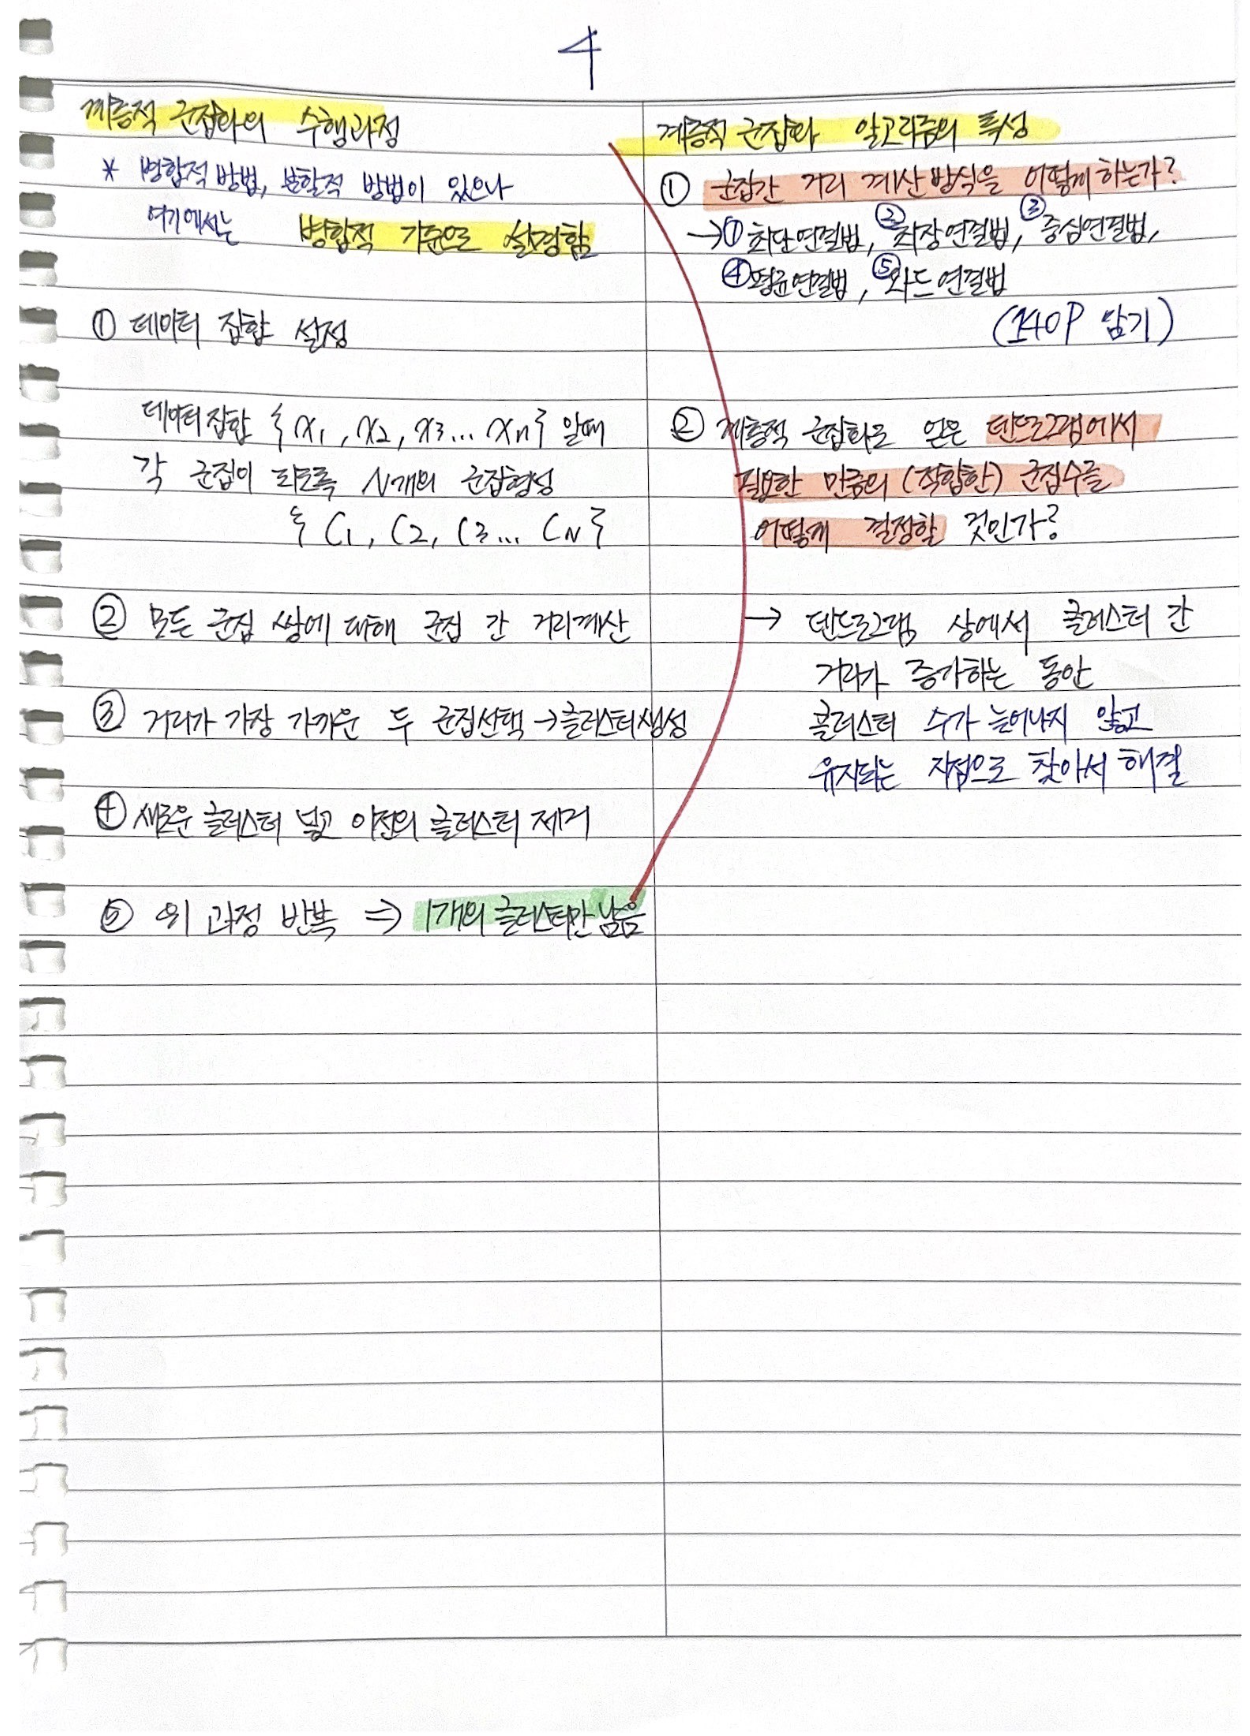 4
계층적 군집화의 수행과정
* 병합적 방법, 분할적 방법이 있으나
여기에서는 병합적 기준으로 설명함
① 데이터 집합 설정
데이터집합 { x1, x2, x3... xn} 일때
각 군집이 되도록 N개의 군집형성
{ C1, C2, C3... CN }
② 모든 군집 쌍에 대해 군집 간 거리계산
③ 거리가 가장 가까운 두 군집선택 → 클러스터생성
④ 새로운 클러스터 넣고 이전의 클러스터 제거
⑤ 위 과정 반복 ⇒ 1개의 클러스터만 남음
계층적 군집화 알고리즘의 특성
① 군집간 거리 계산방식을 어떻게 하는가?
→ ① 최단연결법, ② 최장연결법, ③ 중심연결법,
④ 평균연결법, ⑤ 와드연결법
(140P 암기)
② 계층적 군집화로 얻은 덴드로그램에서
필요한 만큼의 (적합한) 군집수를
어떻게 결정할 것인가?
→ 덴드로그램 상에서 클러스터 간
거리가 증가하는 동안
클러스터 수가 늘어나지 않고
유지되는 지점으로 찾아서 해결